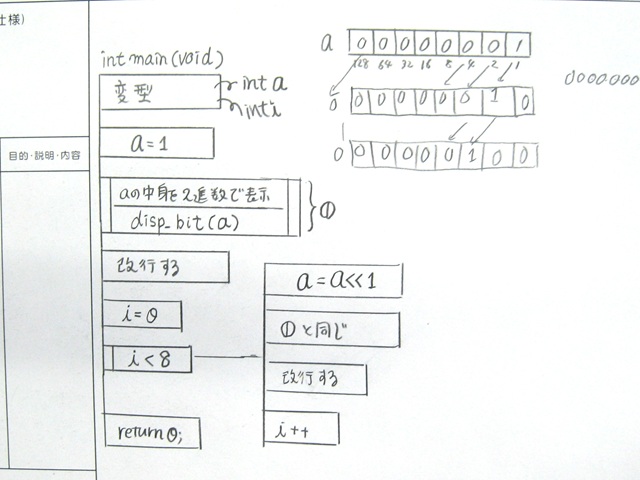 仕様)
目的・説明・内容
int main(void)
変型
int a
int i
a=1
aの中身を2進数で表示
disp_bit(a)
①
改行する
i=0
i<8
return 0;
a=a<<1
①と同じ
改行する
i++
a 0 0 0 0 0 0 0 1
128 64 32 16 8 4 2 1
0 0 0 0 0 0 0 1 0
0 0 0 0 0 0 1 0 0
0000000